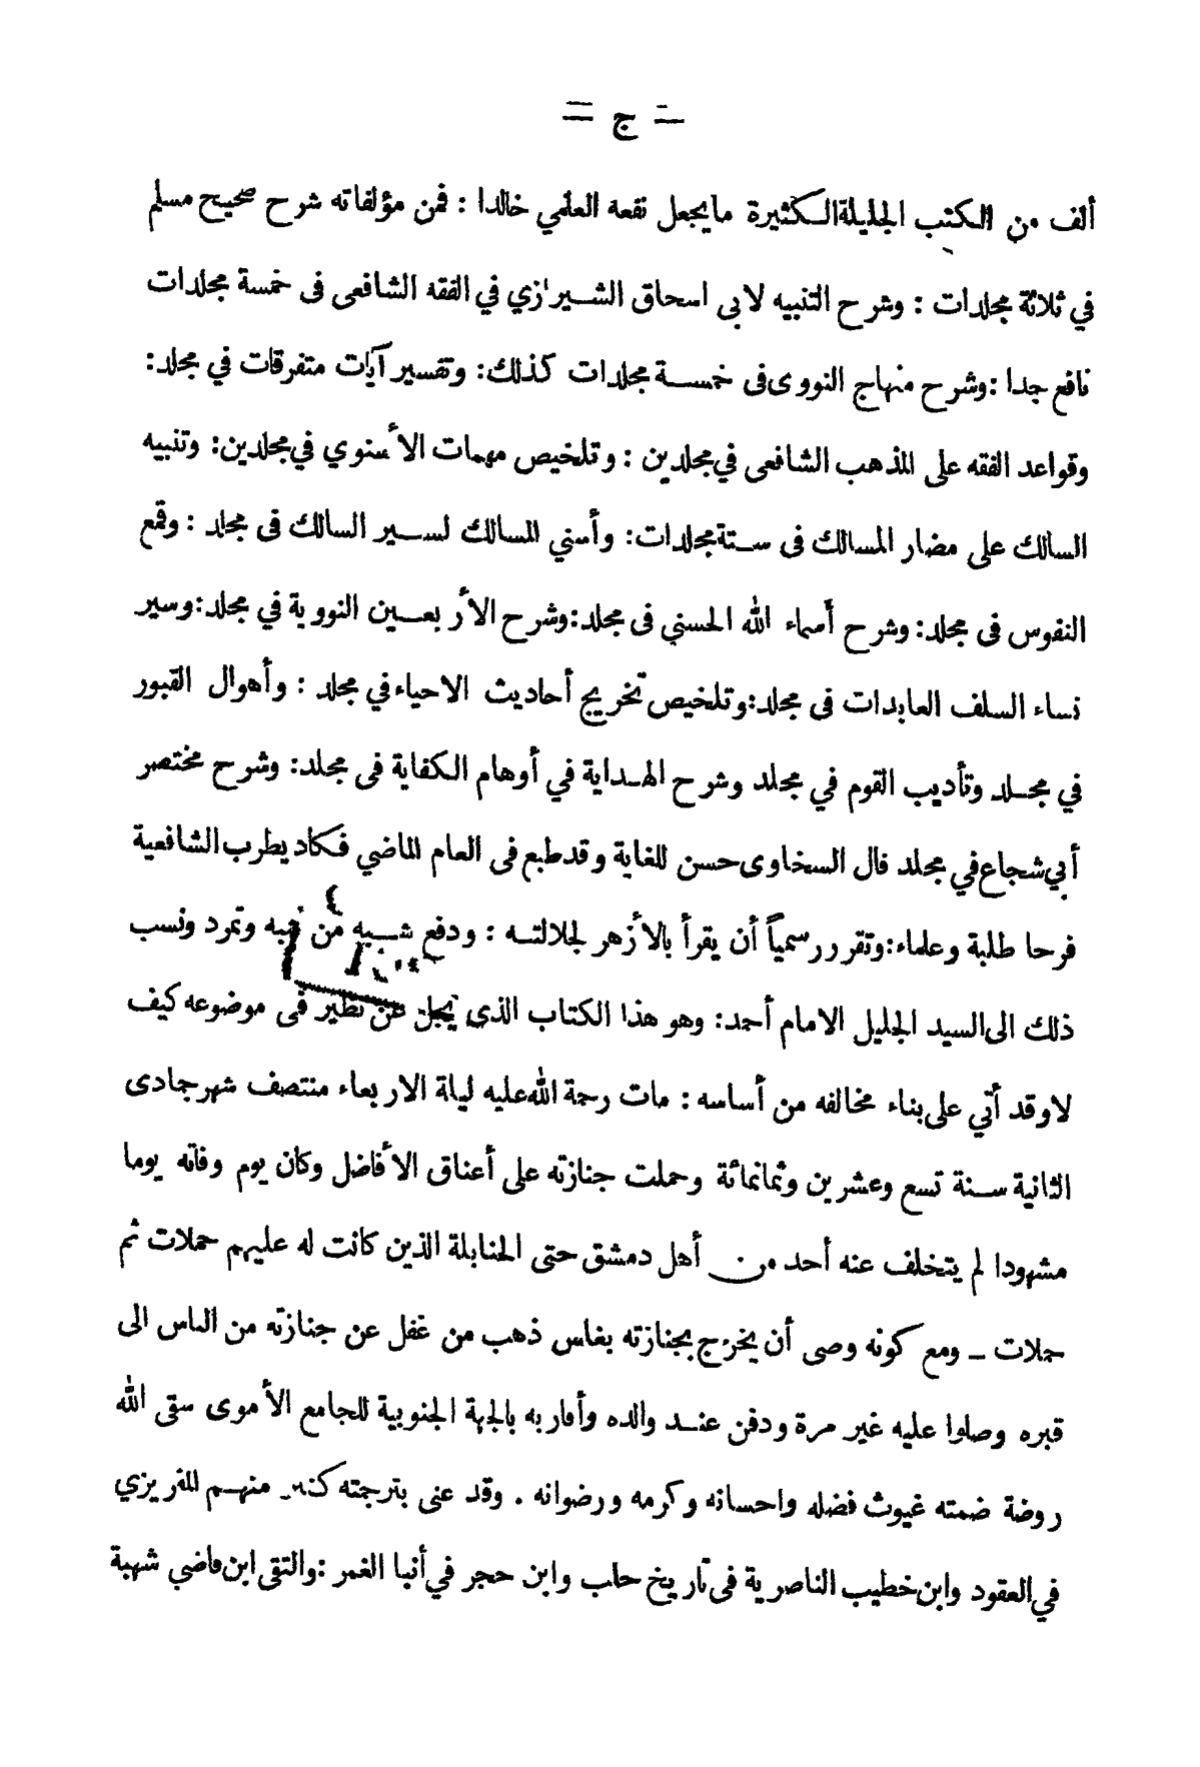 ـ ج ـ
ألف من الكتب الجليلة الكثيرة مايجعل نفعه العلمي خالدا : فمن مؤلفاته شرح صحيح مسلم
في ثلاثة مجلدات : وشرح التنبيه لابى اسحاق الشيرازي في الفقه الشافعى فى خمسة مجلدات
نافع جدا :وشرح منهاج النووى فى خمسة مجلدات كذلك: وتفسير آيات متفرقات في مجلد:
وقواعد الفقه على المذهب الشافعى في مجلدين : وتلخيص مهمات الأسنوي في مجلدين: وتنبيه
السالك على مضار المسالك فى ستة مجلدات: وأسني المسالك لسير السالك فى مجلد : وقمع
النفوس فى مجلد: وشرح أسماء الله الحسني فى مجلد:وشرح الأربعين النووية في مجلد:وسير
نساء السلف العابدات فى مجلد:وتلخيص تخريج أحاديث الاحياء في مجلد : وأهوال القبور
في مجلد وتأديب القوم في مجلد وشرح الهداية في أوهام الكفاية فى مجلد: وشرح مختصر
أبي شجاع في مجلد قال السخاوى حسن للغاية وقد طبع فى العام الماضي فكاد يطرب الشافعية
فرحا طلبة وعلماء:وتقرر رسمياً أن يقرأ بالأزهر لجلالته : ودفع شبه من شبه وتمرد ونسب
ذلك الى السيد الجليل الامام أحمد: وهو هذا الكتاب الذى يجل عن نظير فى موضوعه كيف
لا وقد أتي على بناء مخالفه من أساسه : مات رحمة الله عليه ليلة الاربعاء منتصف شهر جمادى
الثانية سنة تسع وعشرين وثمانمائة وحملت جنازته على أعناق الأفاضل وكان يوم وفاته يوما
مشهودا لم يتخلف عنه أحد من أهل دمشق حتى الحنابلة الذين كانت له عليهم حملات ثم
حملات ـ ومع كونه وصى أن يخرج بجنازته بغلس ذهب من غفل عن جنازته من الناس الى
قبره وصلوا عليه غير مرة ودفن عند والده وأقاربه بالجهة الجنوبية للجامع الأموى سقى الله
روضة ضمته غيوث فضله واحسانه وكرمه ورضوانه . وقد عنى بترجمته كثير منهم المقريزي
في العقود وابن خطيب الناصرية فى تاريخ حلب وابن حجر في أنبا الغمر :والتقى ابن قاضي شهبة